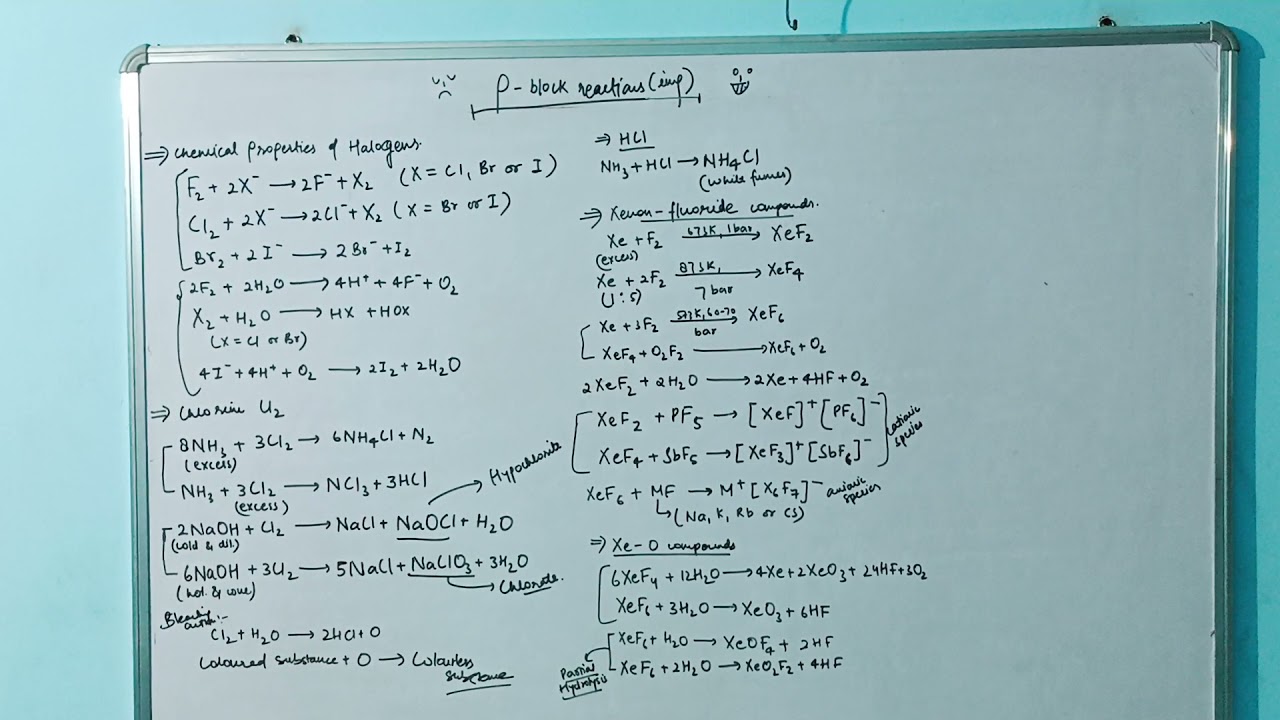 P-block reactions (imp)
⇒ Chemical Properties of Halogens.
F₂ + 2X⁻ → 2F⁻ + X₂ (X = Cl, Br or I)
Cl₂ + 2X⁻ → 2Cl⁻ + X₂ (X = Br or I)
Br₂ + 2I⁻ → 2Br⁻ + I₂
2F₂ + 2H₂O → 4H⁺ + 4F⁻ + O₂
X₂ + H₂O → HX + HOX
(X = Cl or Br)
4I⁻ + 4H⁺ + O₂ → 2I₂ + 2H₂O
⇒ Chlorine Cl₂
8NH₃ + 3Cl₂ → 6NH₄Cl + N₂
(excess)
NH₃ + 3Cl₂ → NCl₃ + 3HCl
(excess)
Hypochlorite
2NaOH + Cl₂ → NaCl + NaOCl + H₂O
(cold & dil.)
6NaOH + 3Cl₂ → 5NaCl + NaClO₃ + 3H₂O
(hot & conc)
Chlorate.
Bleaching action:-
Cl₂ + H₂O → 2HCl + O
Coloured substance + O → Colourless
substance
⇒ HCl
NH₃ + HCl → NH₄Cl
(White fumes)
⇒ Xenon-fluoride compounds.
Xe + F₂ → XeF₂
673K, 1bar
(excess)
Xe + 2F₂ → XeF₄
873K,
7 bar
(1:5)
Xe + 3F₂ → XeF₆
573K, 60-70
bar
XeF₄ + O₂F₂ → XeF₆ + O₂
2XeF₂ + 2H₂O → 2Xe + 4HF + O₂
XeF₂ + PF₅ → [XeF]⁺[PF₆]⁻
XeF₄ + SbF₅ → [XeF₃]⁺[SbF₆]⁻
cationic
species
XeF₆ + MF → M⁺[X₆F₇]⁻ anionic
species
(Na, K, Rb or Cs)
⇒ Xe-O compounds
6XeF₄ + 12H₂O → 4Xe + 2XeO₃ + 24HF + 3O₂
XeF₆ + 3H₂O → XeO₃ + 6HF
XeF₆ + H₂O → XeOF₄ + 2HF
XeF₆ + 2H₂O → XeO₂F₂ + 4HF
Partial
Hydrolysis